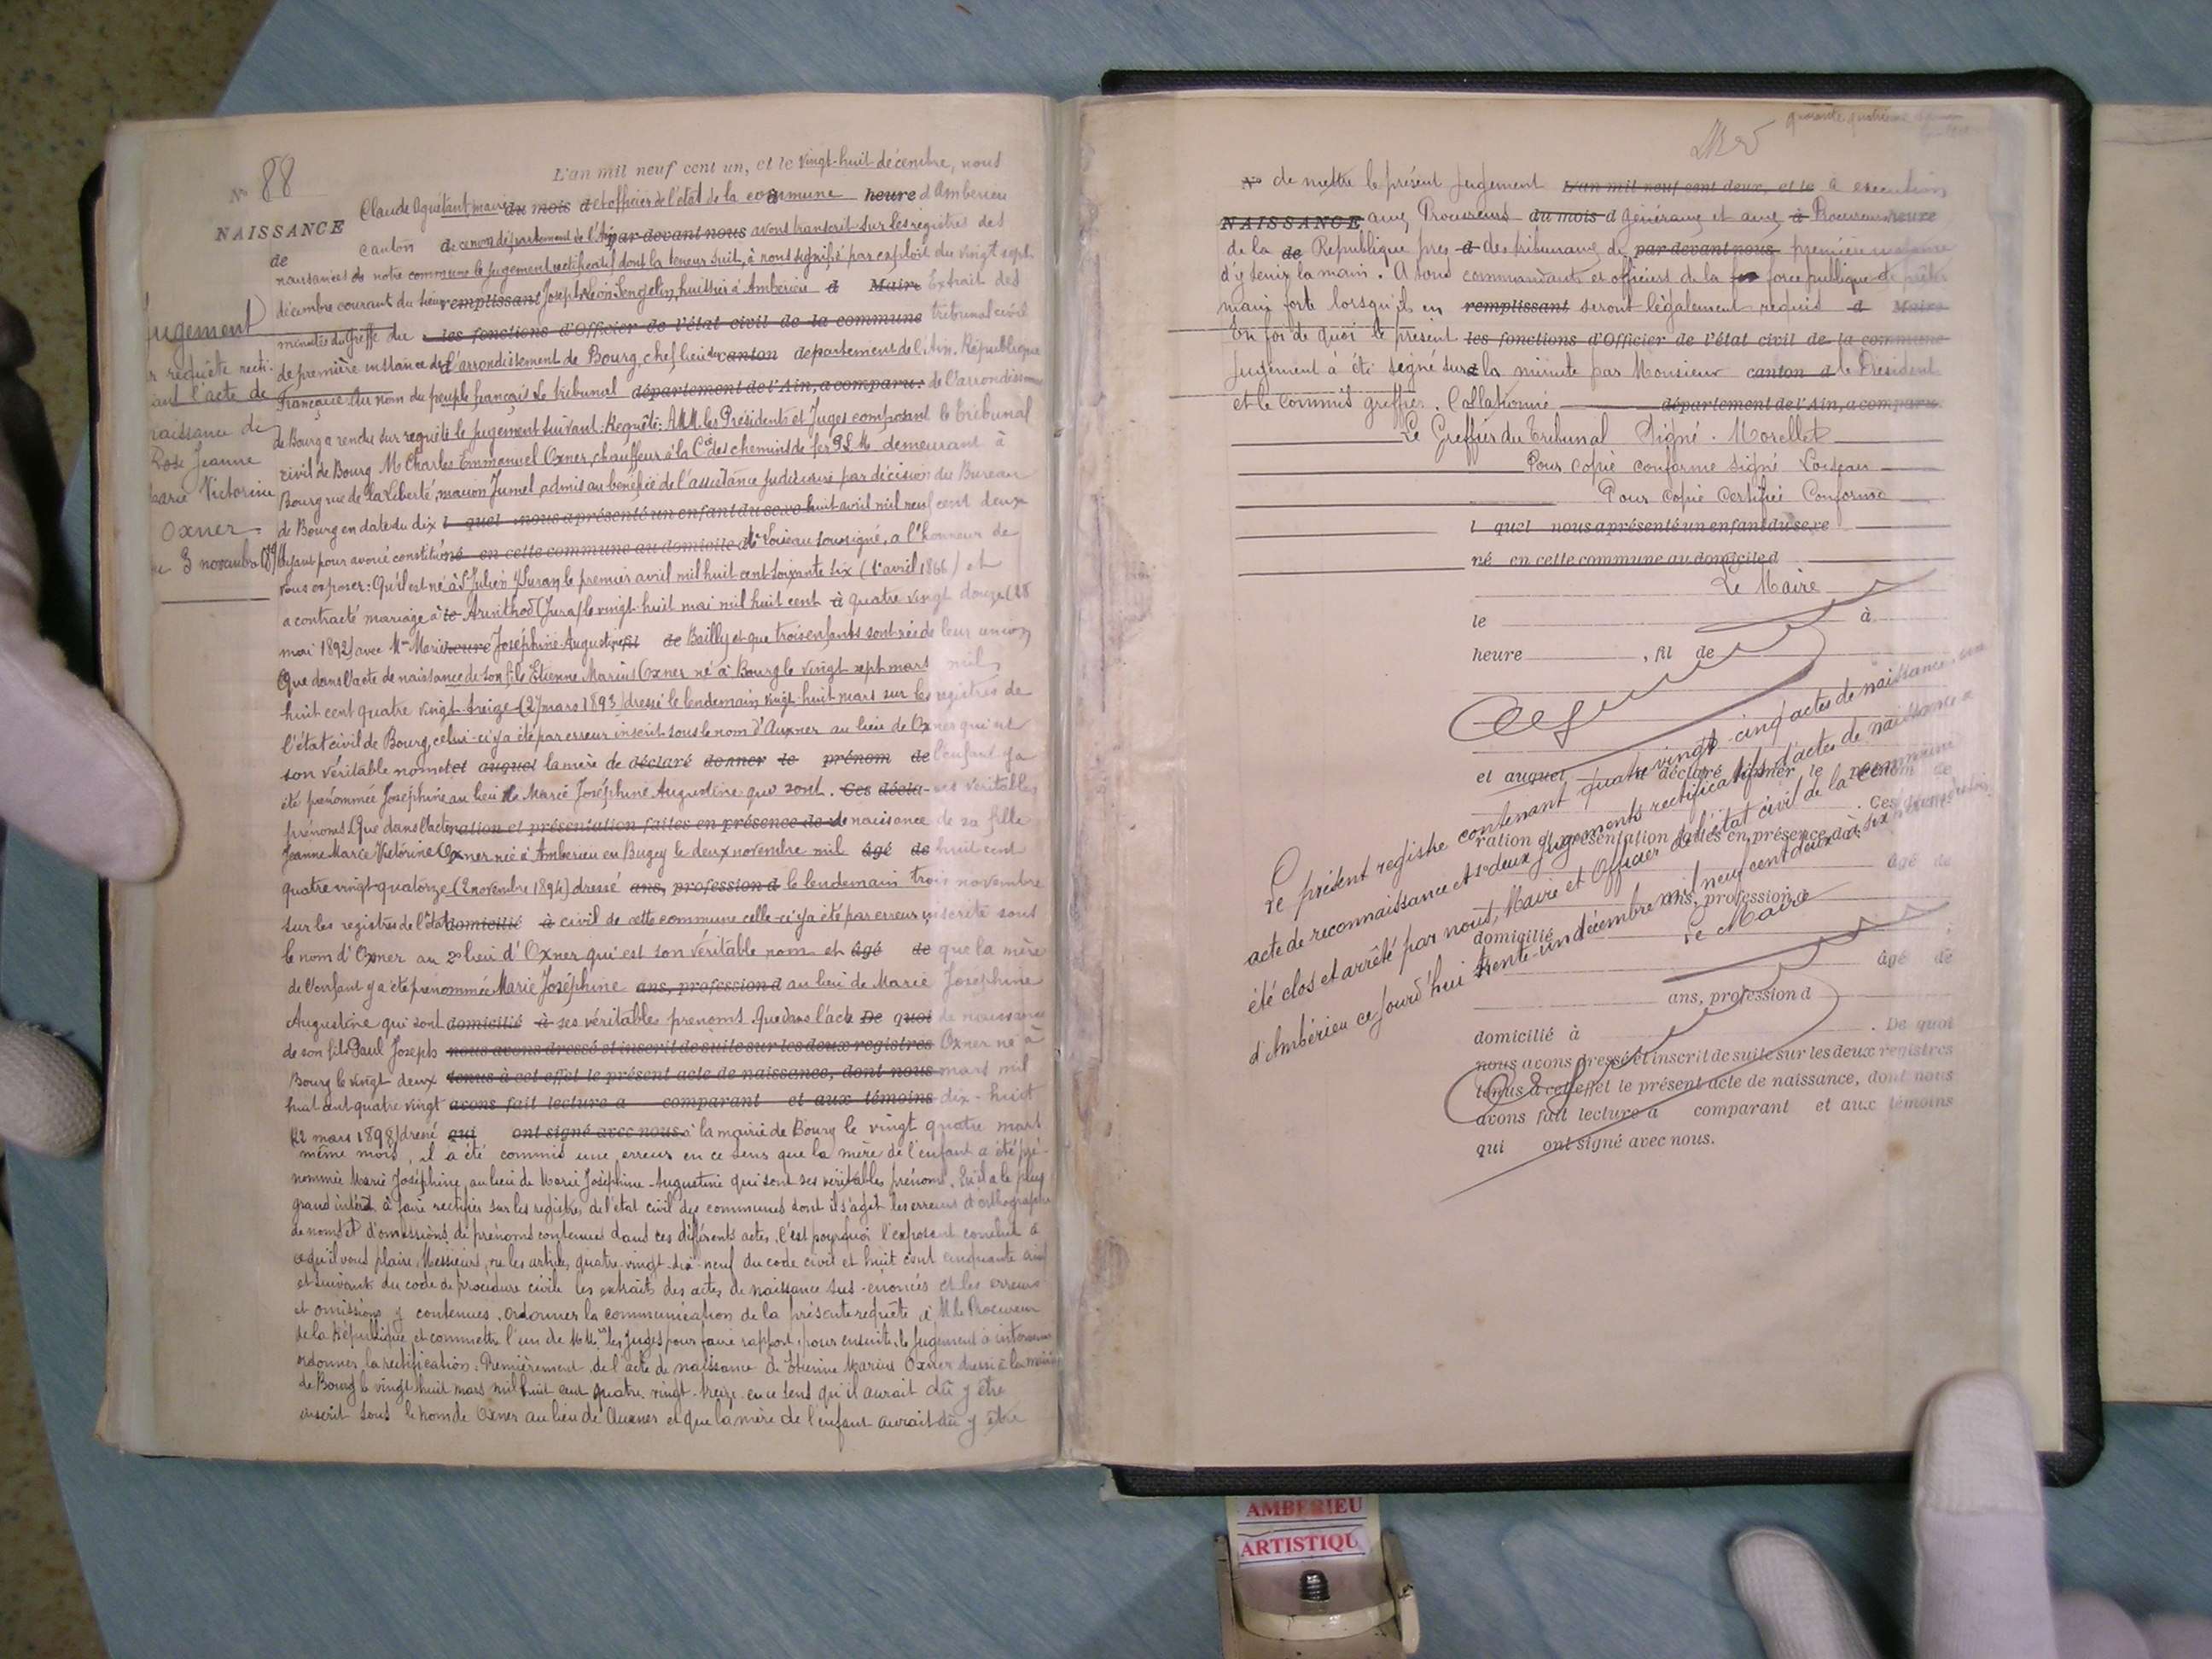 N° 88
NAISSANCE
de
Jugement
requête recti-
l'acte de
naissance de
Rose Jeanne
Marie Victorine
Oxner
3 novembre 1894
L'an mil neuf cent un, et le vingt-huit décembre, nous
Claude Aguétant, maire du mois d et officier de l'état de la commune heure d'Ambérieu
canton de département de l'Ain par devant nous avons transcrit sur les registres des
naissances de notre commune le jugement rectificatif dont la teneur suit, à nous signifié par exploit du vingt sept
décembre courant du sieur remplissant Joseph Léon Lengelin, huissier à Ambérieu d Maire Extrait des
minutes du Greffe du les fonctions d'Officier de l'état civil de la commune tribunal civil
de première instance de l'arrondissement de Bourg, chef lieu du canton département de l'Ain. République
Française. Au nom du peuple français Le tribunal département de l'Ain, a comparu: de l'arrondissement
de Bourg a rendu sur requête le jugement suivant: Requête: A MM. les Présidents et Juges composant le tribunal
civil de Bourg M Charles Emmanuel Oxner, chauffeur à la Cie des chemins de fer P.L.M. demeurant à
Bourg rue de la Liberté, maison Jumel, admis au bénéfice de l'assistance judiciaire par décision du Bureau
de Bourg en date du dix l quel nous a présenté un enfant du sexe huit avril mil neuf cent deux
ayant pour avoué constitué né en cette commune au domicile d Loiseau soussigné, a l'honneur de
vous exposer: Qu'il est né à St Julien s/Suran, le premier avril mil huit cent soixante six (1er avril 1866) et
a contracté mariage à le Arinthod (Jura) le vingt-huit mai mil huit cent à quatre vingt douze (28
mai 1892) avec Mme Marie heure Joséphine-Augustine fil de Bailly et que trois enfants sont nés de leur union,
Que dans l'acte de naissance de son fils Etienne Marius Oxner né à Bourg le vingt sept mars mil
huit cent quatre vingt-treize (27 mars 1893) dressé le lendemain vingt-huit mars sur les registres de
l'état civil de Bourg, celui-ci y a été par erreur inscrit sous le nom d'Auxner au lieu de Oxner qui est
son véritable nom et et auquel la mère de déclaré donner le prénom de l'enfant y a
été prénommée Joséphine au lieu de Marie Joséphine Augustine qui sont. Ces décla- ses véritables
prénoms Que dans l'acte ration et présentation faites en présence de de naissance de sa fille
Jeanne Marie Victorine Oxner née à Ambérieu en Bugey le deux novembre mil âgé de huit cent
quatre vingt-quatorze (2 novembre 1894) dressé ans, profession d le lendemain trois novembre
sur les registres de l'état domicilié à civil de cette commune celle-ci y a été par erreur inscrite sous
le nom d'Oxner au 2° lieu d'Oxner qui est son véritable nom et âgé de que la mère
de l'enfant y a été prénommée Marie Joséphine ans, profession d au lieu de Marie Joséphine
Augustine qui sont domicilié à ses véritables prénoms. Que dans l'acte De quoi de naissance
de son fils Paul Joseph nous avons dressé et inscrit de suite sur les deux registres Oxner né à
Bourg le vingt deux tenus à cet effet le présent acte de naissance, dont nous mars mil
huit cent quatre vingt avons fait lecture a comparant et aux témoins dix-huit
(22 mars 1898) dressé qui ont signé avec nous. à la mairie de Bourg le vingt quatre mars
même mois, il a été commis une erreur en ce sens que la mère de l'enfant a été pré-
nommée Marie Joséphine, au lieu de Marie Joséphine-Augustine qui sont ses véritables prénoms. Qu'il a le plus
grand intérêt à faire rectifier sur les registres de l'état civil des communes dont il s'agit les erreurs d'orthographe
de noms et d'omissions de prénoms contenues dans ces différents actes. C'est pourquoi l'exposant conclut à
ce qu'il vous plaise, Messieurs, vu les articles quatre-vingt-dix-neuf du code civil et huit cent cinquante cinq
et suivants du code de procédure civile les extraits des actes de naissance sus-énoncés et les erreurs
et omissions y contenues, ordonner la communication de la présente requête à M. le Procureur
de la République, et commettre l'un de MM. les Juges pour faire rapport, pour ensuite, le jugement à intervenir
ordonner la rectification: Premièrement de l'acte de naissance de Etienne Marius Oxner dressé à la mairie
de Bourg le vingt-huit mars mil huit cent quatre-vingt-treize en ce sens qu'il aurait dû y être
inscrit sous le nom de Oxner au lieu de Auxner et que la mère de l'enfant aurait dû y être
quarante quatrième
N° de mettre le présent jugement L'an mil neuf cent deux, et le à exécution,
NAISSANCE aux Procureurs du mois d généraux et aux à Procureurs heure
de la de République près d des tribunaux de par devant nous première instance
d'y tenir la main. A tous commandants et officiers de la force publique de prêter
main forte lorsqu'ils en remplissant seront légalement requis d Maire
En foi de quoi le présent les fonctions d'Officier de l'état civil de la commune
jugement à été signé sur d la minute par Monsieur canton d le Président
et le commis greffier. Collationné département de l'Ain, a comparu
Le Greffier du Tribunal Signé. Morellet
Pour copie conforme signé Loiseau
Pour copie certifiée Conforme
l quel nous a présenté un enfant du sexe
né en cette commune au domicile d
Le Maire
le à
heure , fil de
et auquel déclaré donner le prénom de
ration et présentation faites en présence de . Ces
Le présent registre contenant quatre vingt cinq actes de naissance, un
acte de reconnaissance et deux jugements rectificatifs d'actes de naissance a
été clos et arrêté par nous, Maire et Officier de l'état civil de la commune
d'Ambérieu ce jourd'hui trente-un décembre mil neuf cent deux à six
Le Maire
âgé de
ans, profession
domicilié
âgé de
ans, profession d
domicilié à . De quoi
nous avons dressé et inscrit de suite sur les deux registres
tenus à cet effet le présent acte de naissance, dont nous
avons fait lecture a comparant et aux témoins
qui ont signé avec nous.
AMBERIEU
ARTISTIQU